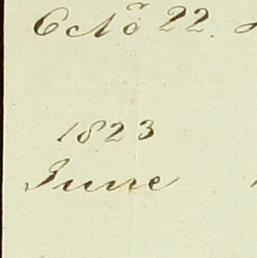 Octo 22.
1823
June